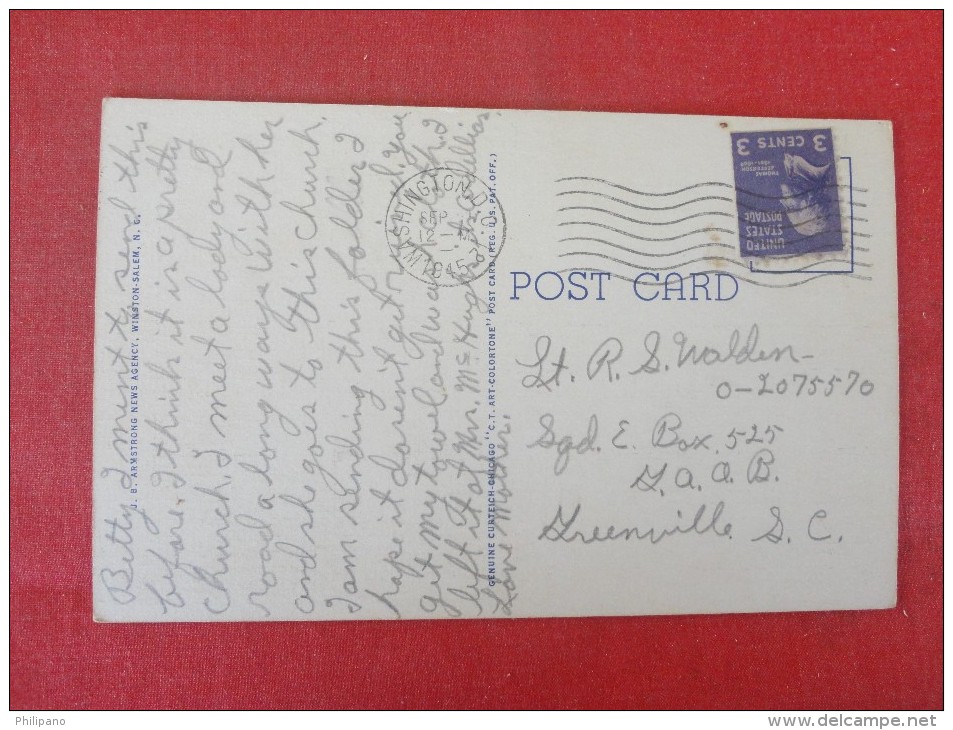 Betty I ment to send this
before. I think it is a pretty
church. I meet a lady and
road a long ways with her
and she goes to this church.
I am sending this folder I
hope it dosent get ruined. you
get my towel and wash
left it at Mrs. McHugh
Love Mother.
J. B. ARMSTRONG NEWS AGENCY, WINSTON-SALEM, N. C.
GENUINE CURTEICH-CHICAGO "C.T. ART-COLORTONE" POST CARD (REG. U.S. PAT. OFF.)
WASHINGTON, D.C.
SEP
12 - M
1945
3 CENTS 3
THOMAS
JEFFERSON
UNITED
STATES
POSTAGE
POST CARD
Lt. R. S. Walden -
O-2075570
Sqd. E. Box. 525
G. A. A. B.
Greenville S. C.
Philipano
www.delcampe.net